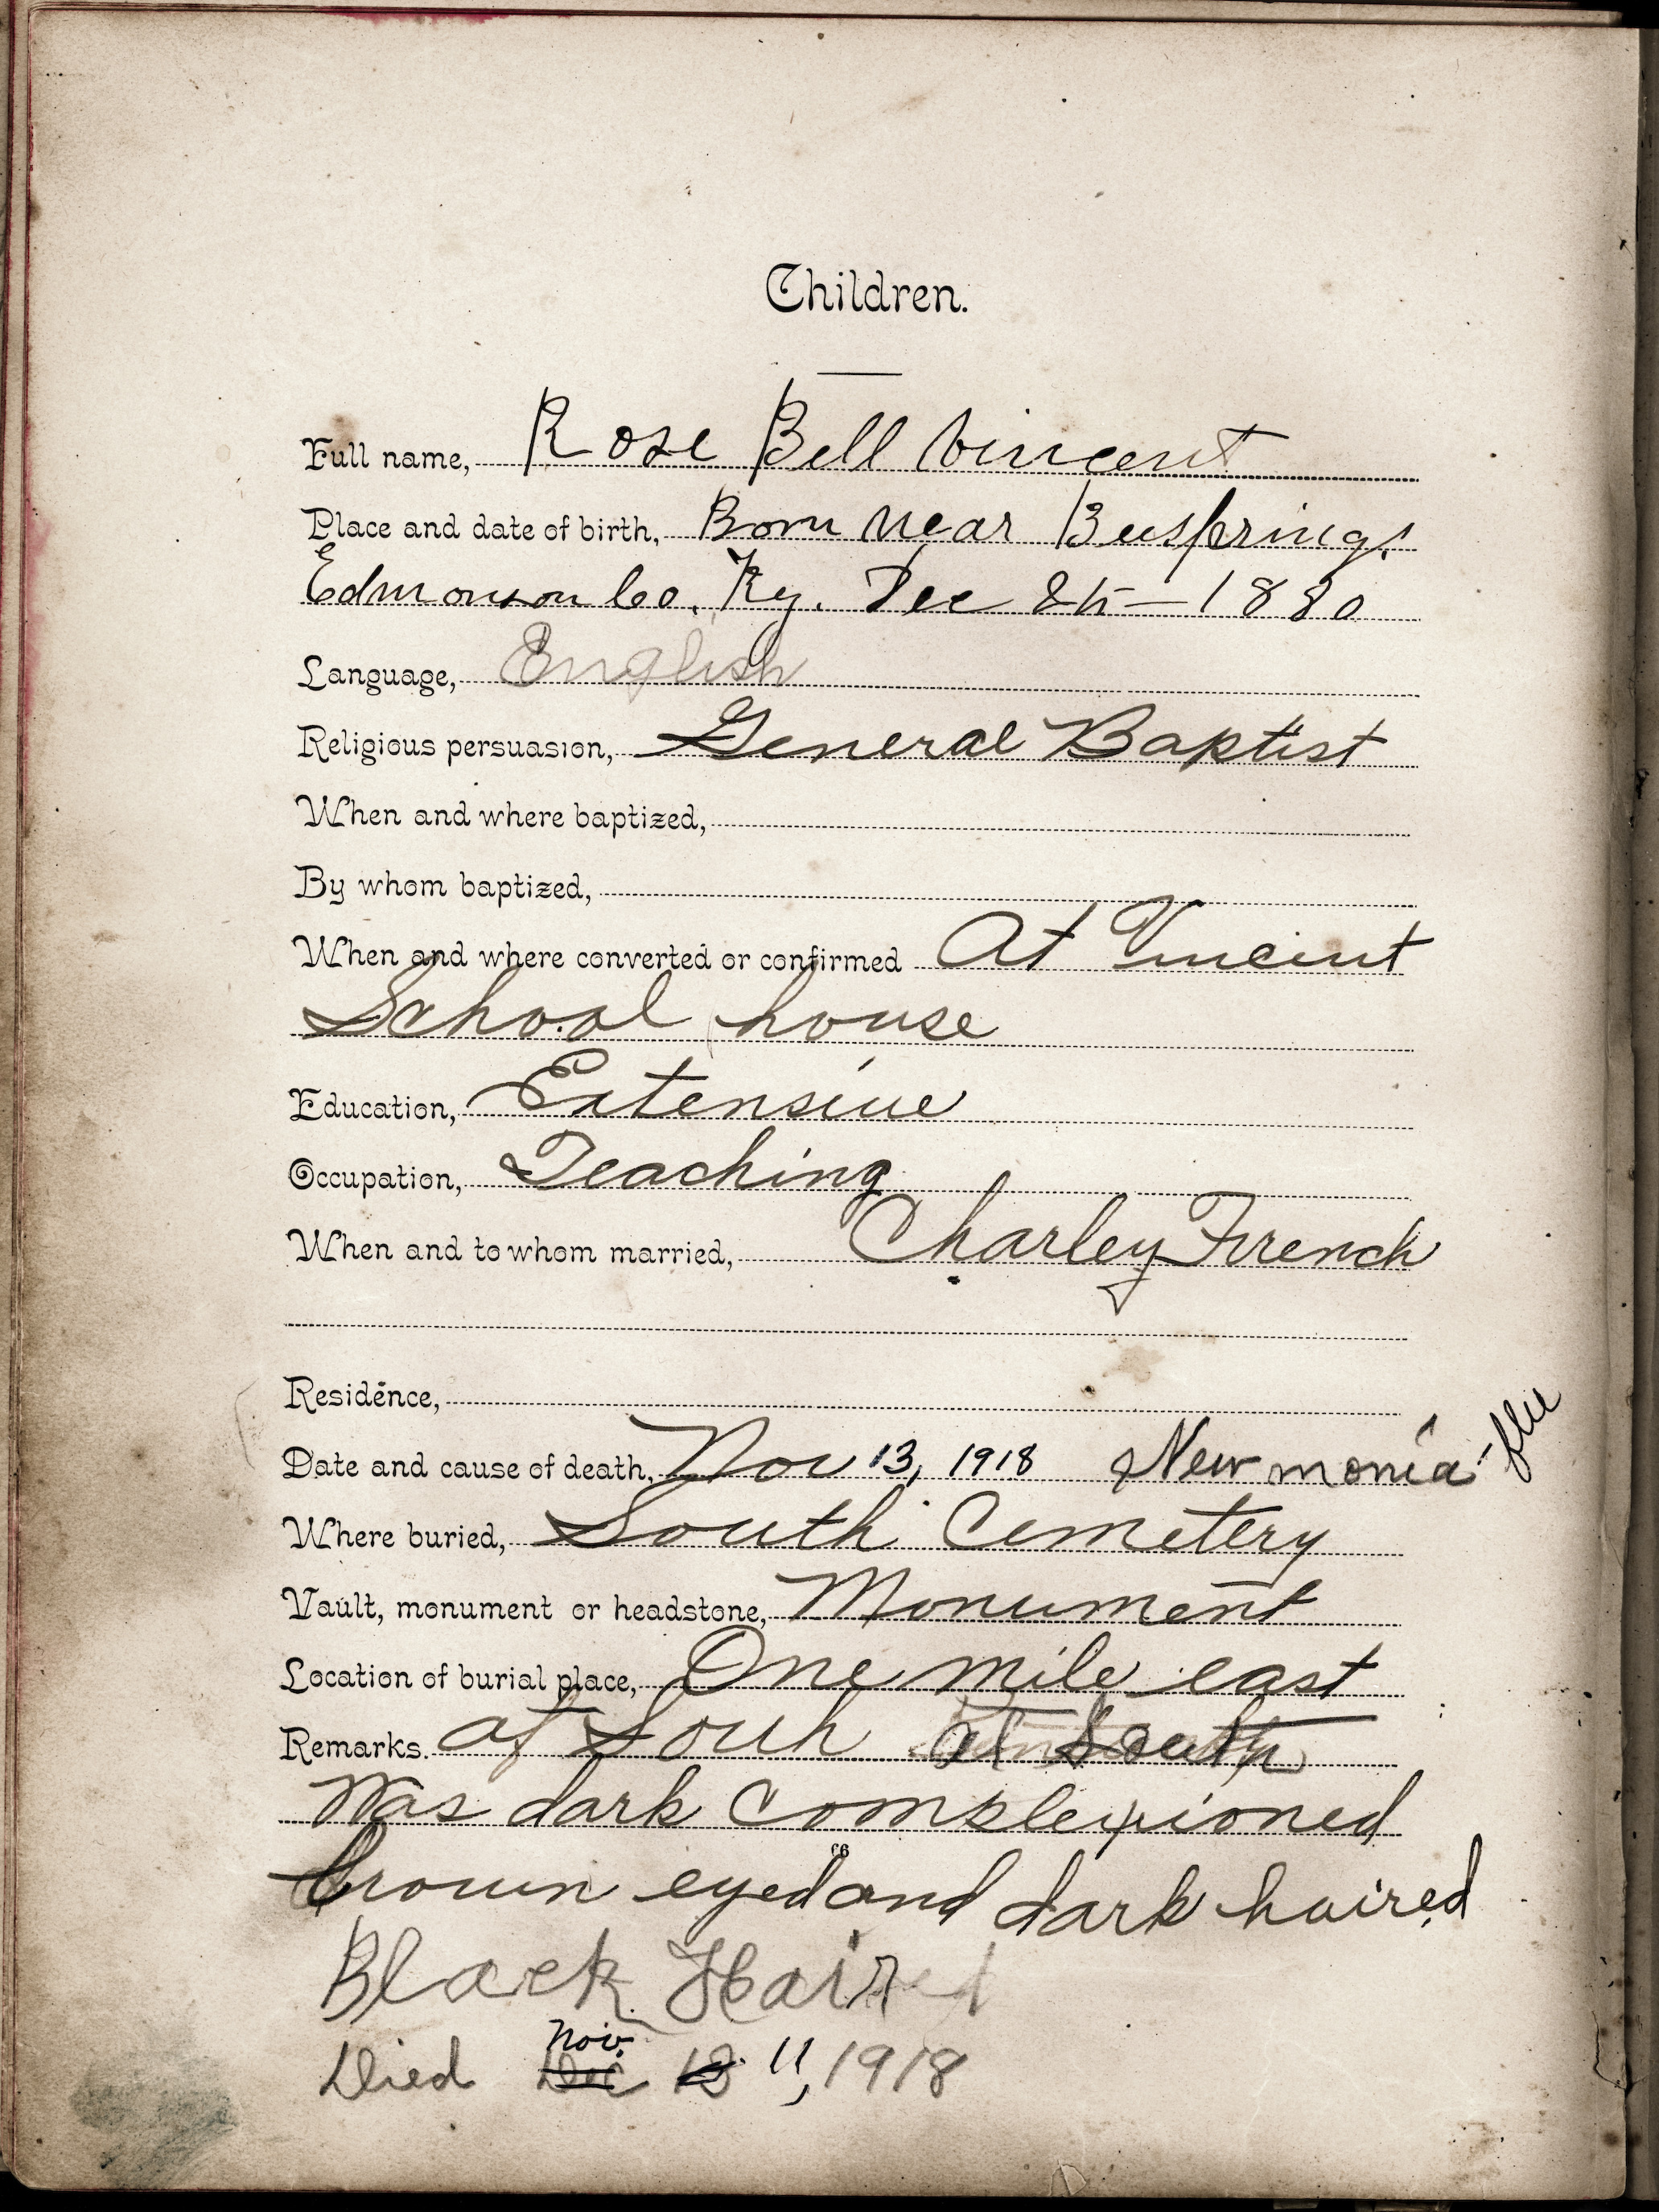 Children.
Full name, Rose Bell Vincent
Place and date of birth, Born Near Beespring,
Edmonson Co. Ky. Dec 8th — 1880
Language, English
Religious persuasion, General Baptist
When and where baptized,
By whom baptized,
When and where converted or confirmed At Vincint
School house
Education, Extensive
Occupation, Teaching
When and to whom married, Charley French
Residence,
Date and cause of death, Nov 13, 1918 New monia - flu
Where buried, South Cemetery
Vault, monument or headstone, Monument
Location of burial place, One mile east
Remarks. of Souh at South
Was dark complexioned
brown eyed and dark haired
Black Haired
Nov.
Died Dec 13 11, 1918